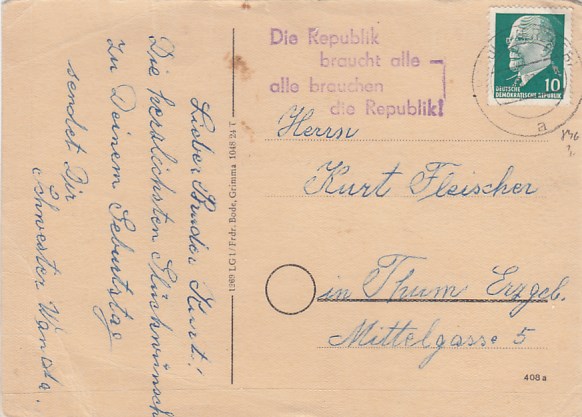 Lieber Bruder Kurt!
Die herzlichsten Glückwünsch
zu Deinem Geburtstag
sendet Dir
Schwester Wanda.
1269 LG 1 / Frdr. Bode, Grimma 1048 24 T
Die Republik
braucht alle
alle brauchen
die Republik!
DEUTSCHE
DEMOKRATISCHE REPUBLIK
10
a
Herrn
Kurt Fleischer
in Thum Erzgeb.
Mittelgasse 5
408 a